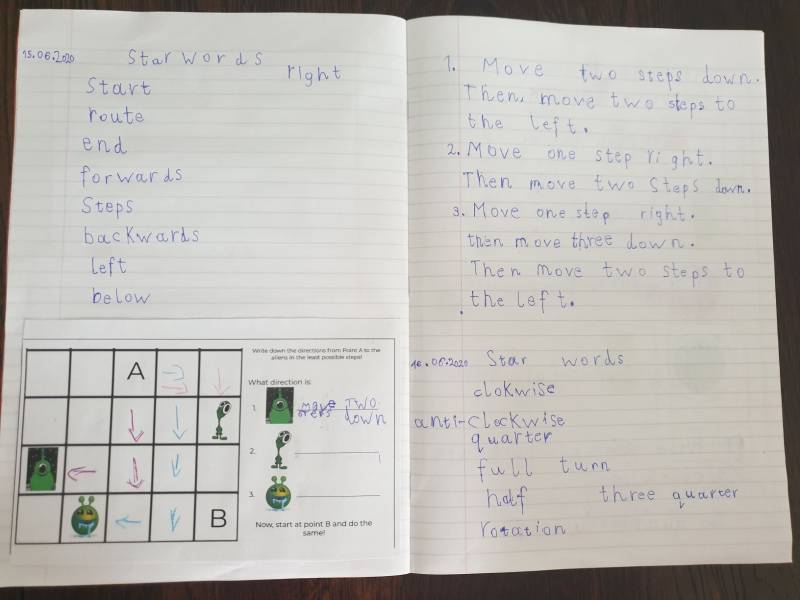 15.06.2020 Star words
right
Start
route
end
forwards
Steps
backwards
left
below
A
B
Write down the directions from Point A to the
aliens in the least possible steps!
What direction is:
1. move TWO
steps down
2.
3.
Now, start at point B and do the
same!
1. Move two steps down.
Then, move two steps to
the left.
2. Move one step right.
Then move two Steps down.
3. Move one step right.
then move three down.
Then move two steps to
the left.
16.06.2020 Star words
clokwise
anti-clockwise
quarter
full turn
half three quarter
rotation